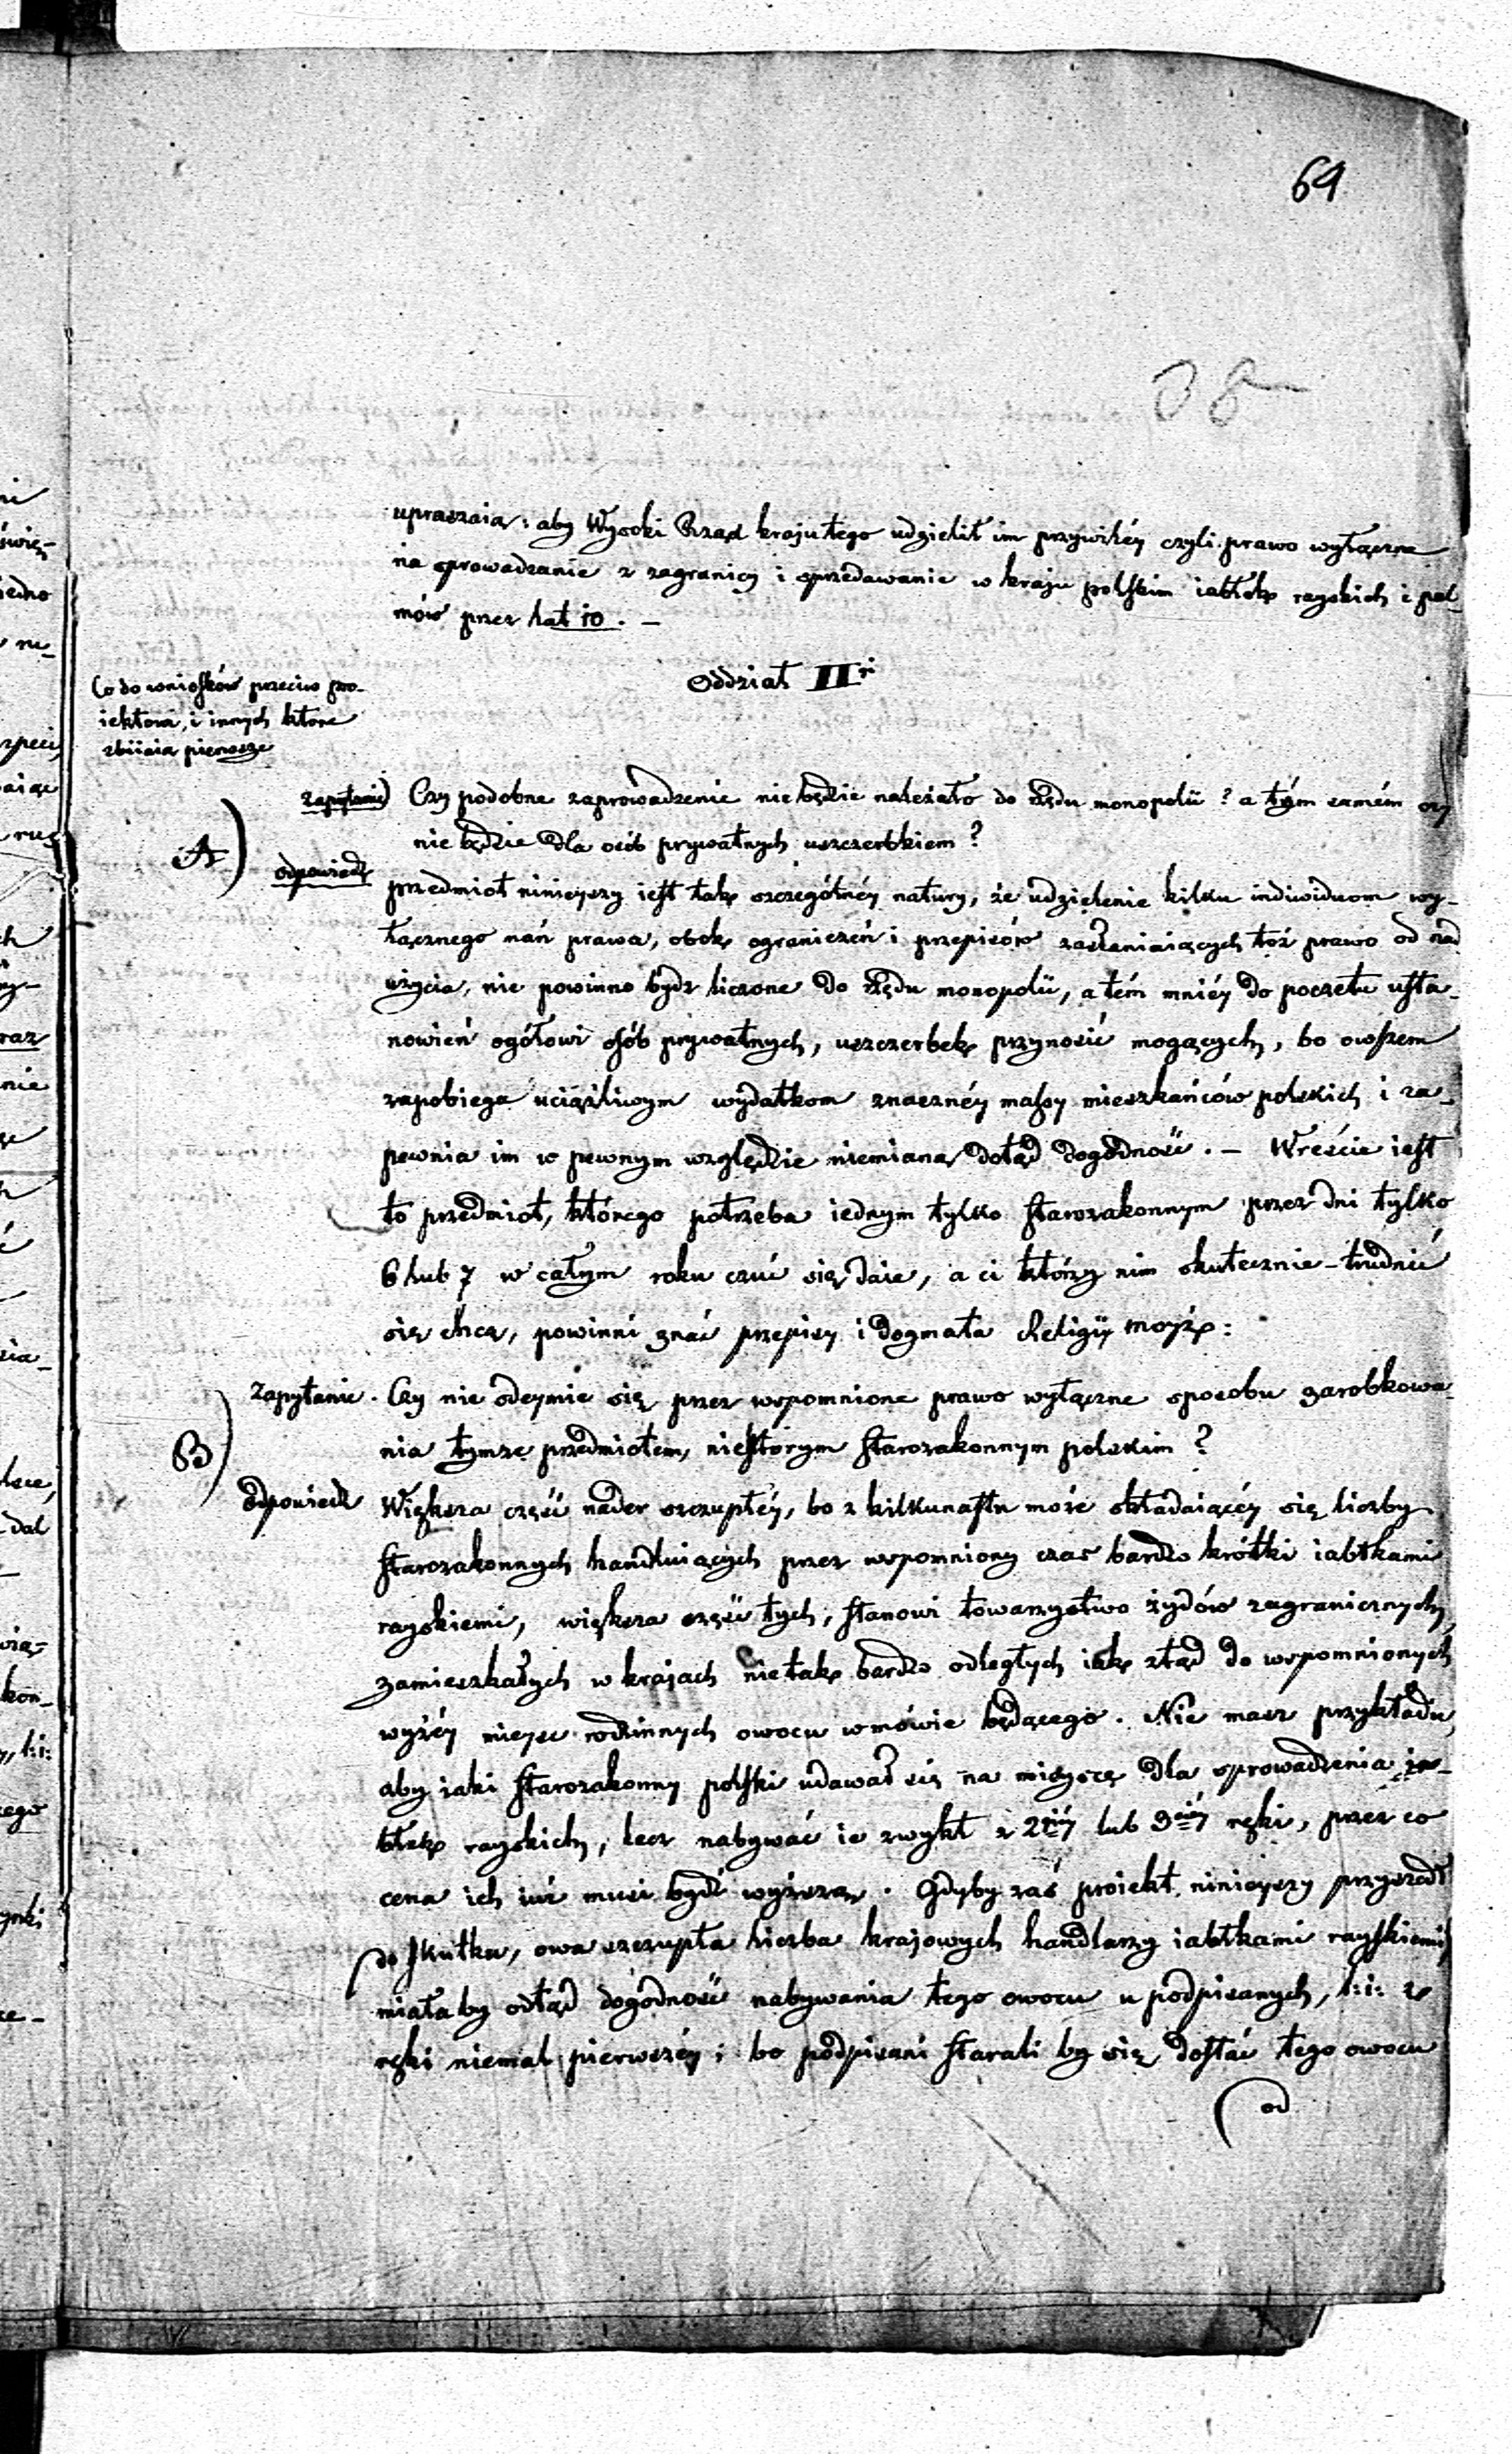 64
38
upraszaią: aby Wysoki Rząd kraju tego udzielił im przywiléy czyli prawo wyłączne
na sprowadzanie z zagranicy i sprzedawanie w kraju polskim iabłek rayskich i pal-
mów przez lat 10. –
Oddział II
Co do wniosków przeciw pro-
iektowi, i innych które
zbiiaią pierwsze
A)
zapytanie) Czy podobne zaprowadzenie nie będzie należało do rzędu monopolii? a tym samém czy
nie będzie dla osób prywatnych uszczerbkiem?
odpowiedź przedmiot ninieyszy iest tak szczególnéy natury, że udzielenie kilku indiwiduom wy-
łącznego nań prawa, obok ograniczeń i przepisów zasłaniaiących toż prawo od nad
użycia, nie powinno bydź liczone do rzędu monopolii, a tém mniéy do pocztu usta-
nowień ogółowi osób prywatnych, uszczerbek przynosić mogących, bo owszem
zapobiega uciążliwym wydatkom znacznéy massy mieszkańców polskich i za-
pewnia im w pewnym względzie niemianą dotąd dogodność. – Wreście iest
to przedmiot, którego potrzeba iednym tylko starozakonnym przez dni tylko
6 lub 7 w całym roku czuć się daie, a ci którzy nim skutecznie trudnić
się chcą, powinni znać przepisy i dogmata Religii moyż:
B)
Zapytanie. Czy nie odeymie się przez wspomnione prawo wyłączne sposobu zarobkowa
nia tymże przedmiotem, niektórym starozakonnym polskim?
Odpowiedź Większa część nader szczupłéy, bo z kilkunastu może składaiącéy się liczby
starozakonnych handluiących przez wspomniony czas bardzo krótki iabłkami
rayskiemi, większa część tych, stanowi towarzystwo żydów zagranicznych,
zamieszkałych w krajach nie tak bardzo odległych iak ztąd do wspomnionych
wyżéy mieysc rodzinnych owocu w mowie będącego. Nie masz przykładu,
aby iaki starozakonny polski udawał się na mieysce dla sprowadzenia ia-
błek rayskich, lecz nabywać ie zwykł z 2giéy lub 3ciéy ręki, przez co
cena ich iuż musi bydź wyższa. Gdyby zaś proiekt ninieyszy przyszedł
do skutku, owa szczupła liczba krajowych handlarzy iabłkami rayskiemi
miałaby odtąd dogodność nabywania tego owocu u podpisanych, t:i: z
ręki niemal pierwszéy; bo podpisani starali by się dostać tego owocu
od